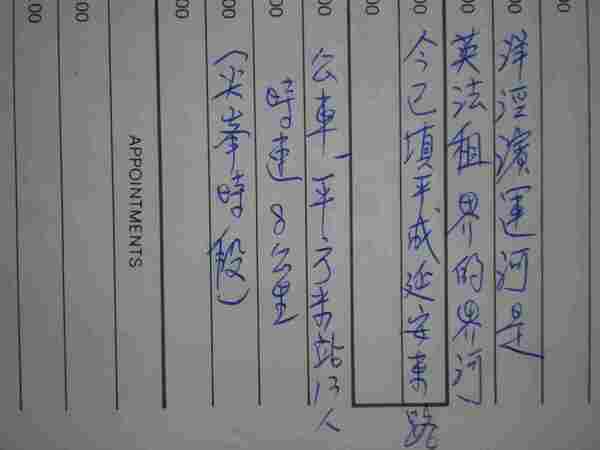 洋涇濱運河是
英法租界的界河
今已填平成延安東路
公車,平方米站13人
時速8公里
(尖峯時段)
APPOINTMENTS
00
00
00
00
00
00
00
00
00
00